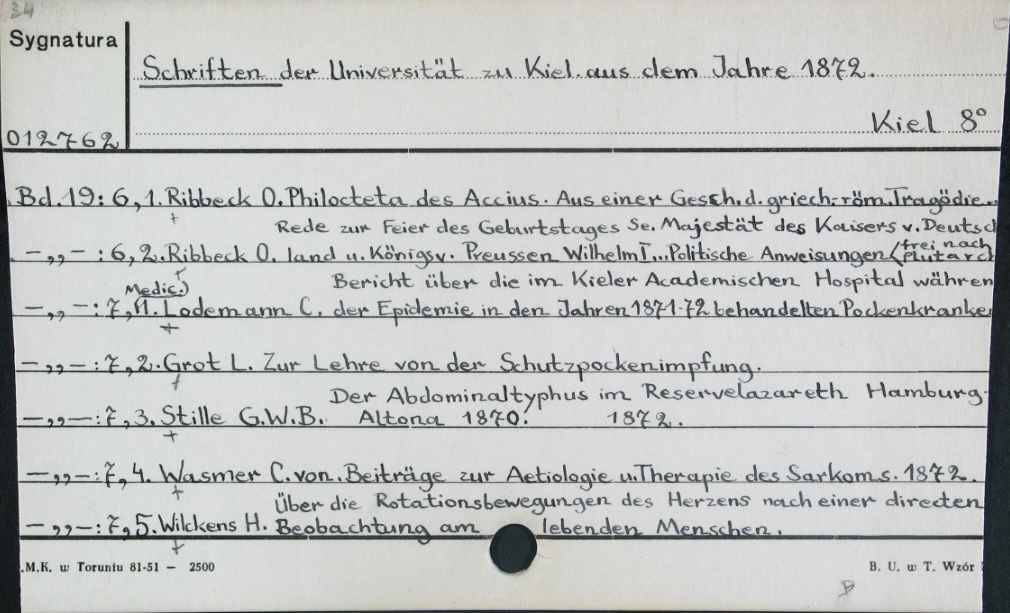 34
Sygnatura
Schriften der Universität zu Kiel aus dem Jahre 1872.
Kiel 8°
012762
Bd. 19: 6, 1. Ribbeck O. Philocteta des Accius. Aus einer Gesch. d. griech.-röm. Tragödie.
Rede zur Feier des Geburtstages Se. Majestät des Kaisers v. Deutsch
frei nach
-„-: 6, 2. Ribbeck O. land u. Königs v. Preussen Wilhelm I... Politische Anweisungen (Plutarch
Bericht über die im Kieler Academischen Hospital währen
Medic.)
-„-: 7, 1. Lodemann C. der Epidemie in den Jahren 1871-72 behandelten Pockenkranke
-„-: 7, 2. Grot L. Zur Lehre von der Schutzpockenimpfung.
Der Abdominaltyphus im Reservelazareth Hamburg-
-„-: 7, 3. Stille G.W.B. Altona 1870. 1872.
-„-: 7, 4. Wasmer C. von. Beiträge zur Aetiologie u. Therapie des Sarkoms. 1872.
Über die Rotationsbewegungen des Herzens nach einer directen
-„-: 7, 5. Wilckens H. Beobachtung am lebenden Menschen.
.M.K. w Toruniu 81-51 — 2500
B. U. w T. Wzór